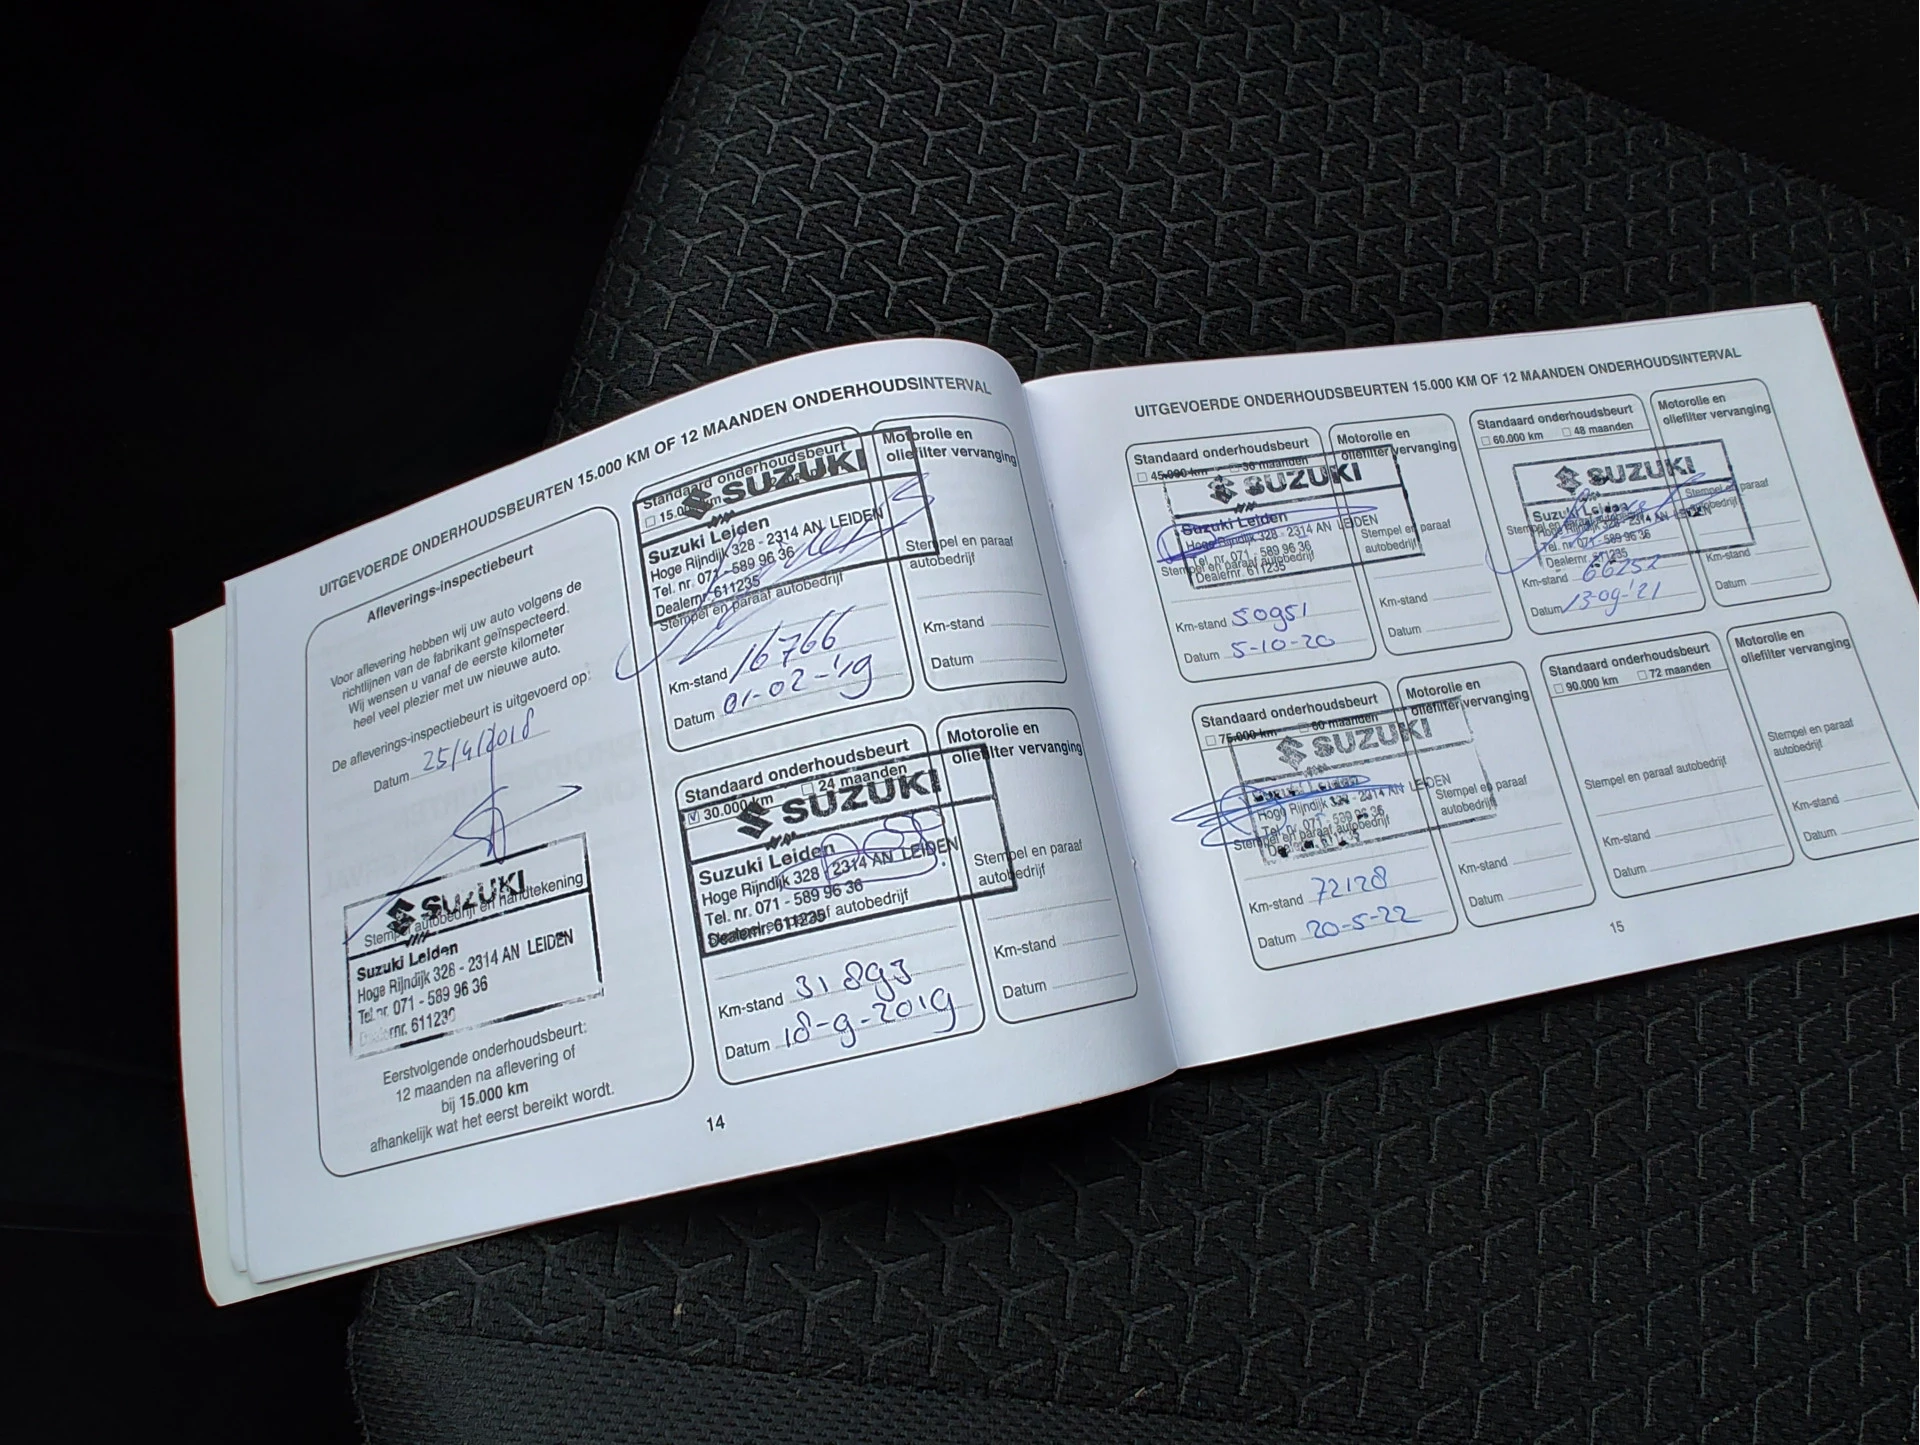 UITGEVOERDE ONDERHOUDSBEURTEN 15.000 KM OF 12 MAANDEN ONDERHOUDSINTERVAL
Afleverings-inspectiebeurt
Voor aflevering hebben wij uw auto volgens de
richtlijnen van de fabrikant geïnspecteerd.
Wij wensen u vanaf de eerste kilometer
heel veel plezier met uw nieuwe auto.
De afleverings-inspectiebeurt is uitgevoerd op:
Datum 25/4/2018
SUZUKI
Stempel autobedrijf en handtekening
Suzuki Leiden
Hoge Rijndijk 328 - 2314 AN LEIDEN
Tel. nr. 071 - 589 96 36
Eerstvolgende onderhoudsbeurt:
12 maanden na aflevering of
bij 15.000 km
afhankelijk wat het eerst bereikt wordt.
Standaard onderhoudsbeurt
SUZUKI
Suzuki Leiden
Hoge Rijndijk 328 - 2314 AN LEIDEN
Tel. nr. 071 - 589 96 36
Dealernr. 611235
Stempel en paraaf autobedrijf
Km-stand 16766
Datum 01-02-'19
Motorolie en
oliefilter vervanging
Stempel en paraaf
autobedrijf
Km-stand
Datum
Standaard onderhoudsbeurt
30.000 km 24 maanden
SUZUKI
Suzuki Leiden
Hoge Rijndijk 328 - 2314 AN LEIDEN
Tel. nr. 071 - 589 96 36
Dealernr. 611235
Stempel en paraaf autobedrijf
Km-stand 31893
Datum 18-9-2019
Motorolie en
oliefilter vervanging
Stempel en paraaf
autobedrijf
Km-stand
Datum
14
UITGEVOERDE ONDERHOUDSBEURTEN 15.000 KM OF 12 MAANDEN ONDERHOUDSINTERVAL
Standaard onderhoudsbeurt
45.000 km 36 maanden
SUZUKI
Suzuki Leiden
Hoge Rijndijk 328 - 2314 AN LEIDEN
Tel. nr. 071 - 589 96 36
Stempel en paraaf autobedrijf
Dealernr. 611235
Km-stand 50951
Datum 5-10-20
Motorolie en
oliefilter vervanging
Stempel en paraaf
autobedrijf
Km-stand
Datum
Standaard onderhoudsbeurt
60.000 km 48 maanden
SUZUKI
Suzuki Leiden
Hoge Rijndijk 328 - 2314 AN LEIDEN
Tel. nr. 071 - 589 96 36
Dealernr. 611235
Km-stand 66252
Datum 13-09-'21
Motorolie en
oliefilter vervanging
Stempel en paraaf
autobedrijf
Km-stand
Datum
Standaard onderhoudsbeurt
75.000 km 60 maanden
SUZUKI
Hoge Rijndijk 328 - 2314 AN LEIDEN
Tel. nr. 071 - 589 96 36
Stempel en paraaf autobedrijf
Km-stand 72128
Datum 20-5-22
Motorolie en
oliefilter vervanging
Stempel en paraaf
autobedrijf
Km-stand
Datum
Standaard onderhoudsbeurt
90.000 km 72 maanden
Stempel en paraaf autobedrijf
Km-stand
Datum
Motorolie en
oliefilter vervanging
Stempel en paraaf
autobedrijf
Km-stand
Datum
15